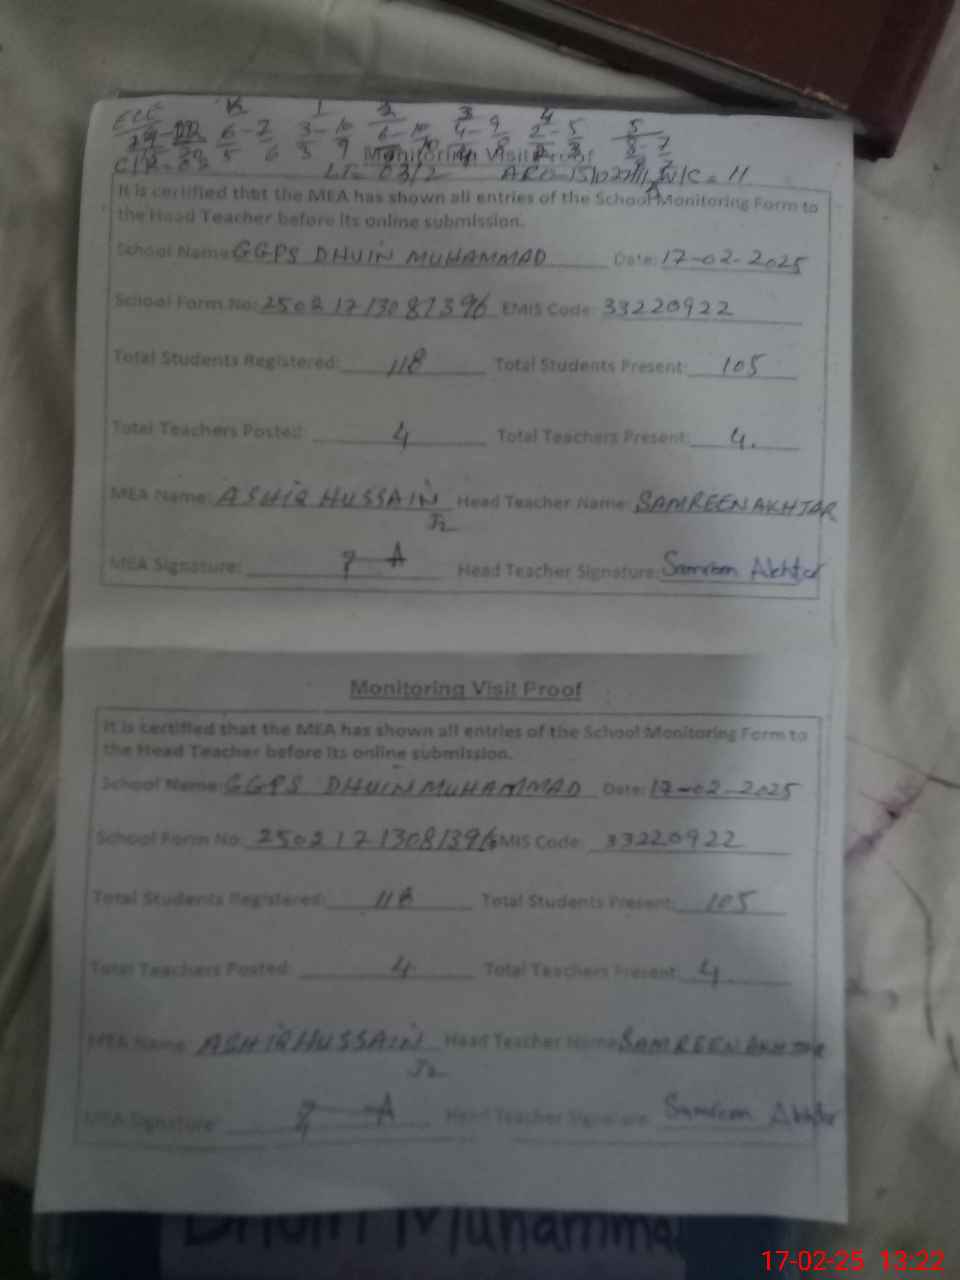 ECE K 1 2 3 4 5
6-7 3-10 6-10 4-9 2-5 8-7
5 6 5 9
Monitoring Visit Proof
It is certified that the MEA has shown all entries of the School Monitoring Form to
the Head Teacher before its online submission.
School Name: GGPS DHUIN MUHAMMAD Date: 17-02-2025
School Form No: EMIS Code: 33220922
Total Students Registered: 118 Total Students Present: 105
Total Teachers Posted: 4 Total Teachers Present: 4.
MEA Name: ASHIQ HUSSAIN Head Teacher Name: SAMREEN AKHTAR
MEA Signature: Head Teacher Signature: Samreen Akhtar
Monitoring Visit Proof
It is certified that the MEA has shown all entries of the School Monitoring Form to
the Head Teacher before its online submission.
School Name: GGPS DHUIN MUHAMMAD Date: 17-02-2025
School Form No: EMIS Code: 33220922
Total Students Registered: 118 Total Students Present: 105
Total Teachers Posted: 4 Total Teachers Present: 4
MEA Name: ASHIQ HUSSAIN Head Teacher Name: SAMREEN AKHTAR
MEA Signature: Head Teacher Signature: Samreen Akhtar
Dhuin Muhammad
17-02-25 13:22